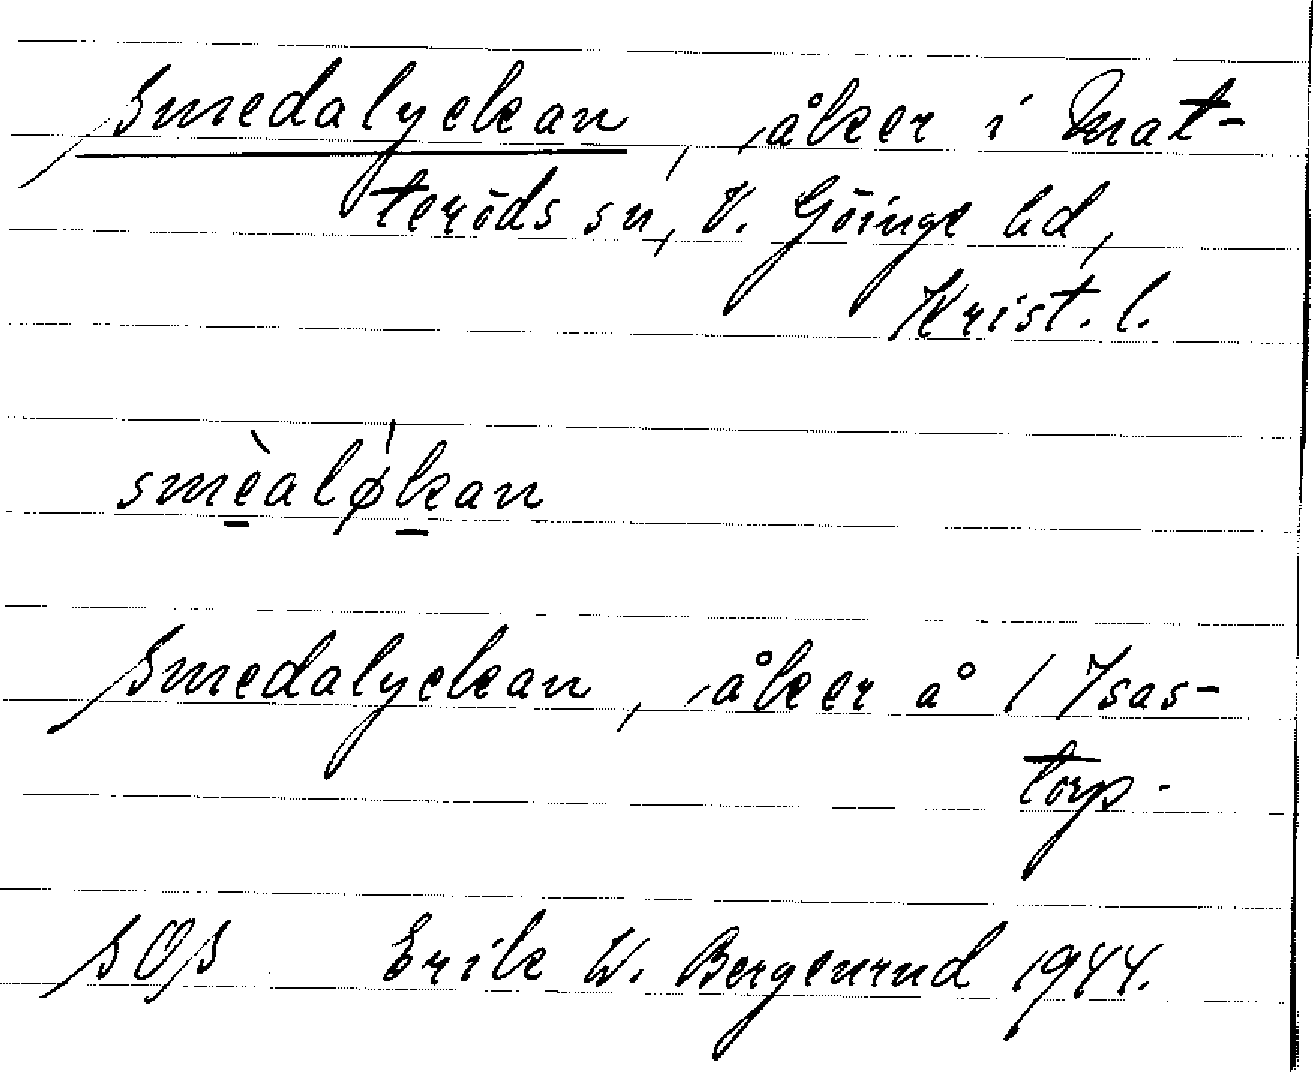 Smedalyckan, åker i Mat-
teröds sn, V. Göinge hd,
Krist. l.
smèaløkan
Smedalyckan, åker å 1 Isas-
torp.
SOS Erik W. Bergenrud 1944.